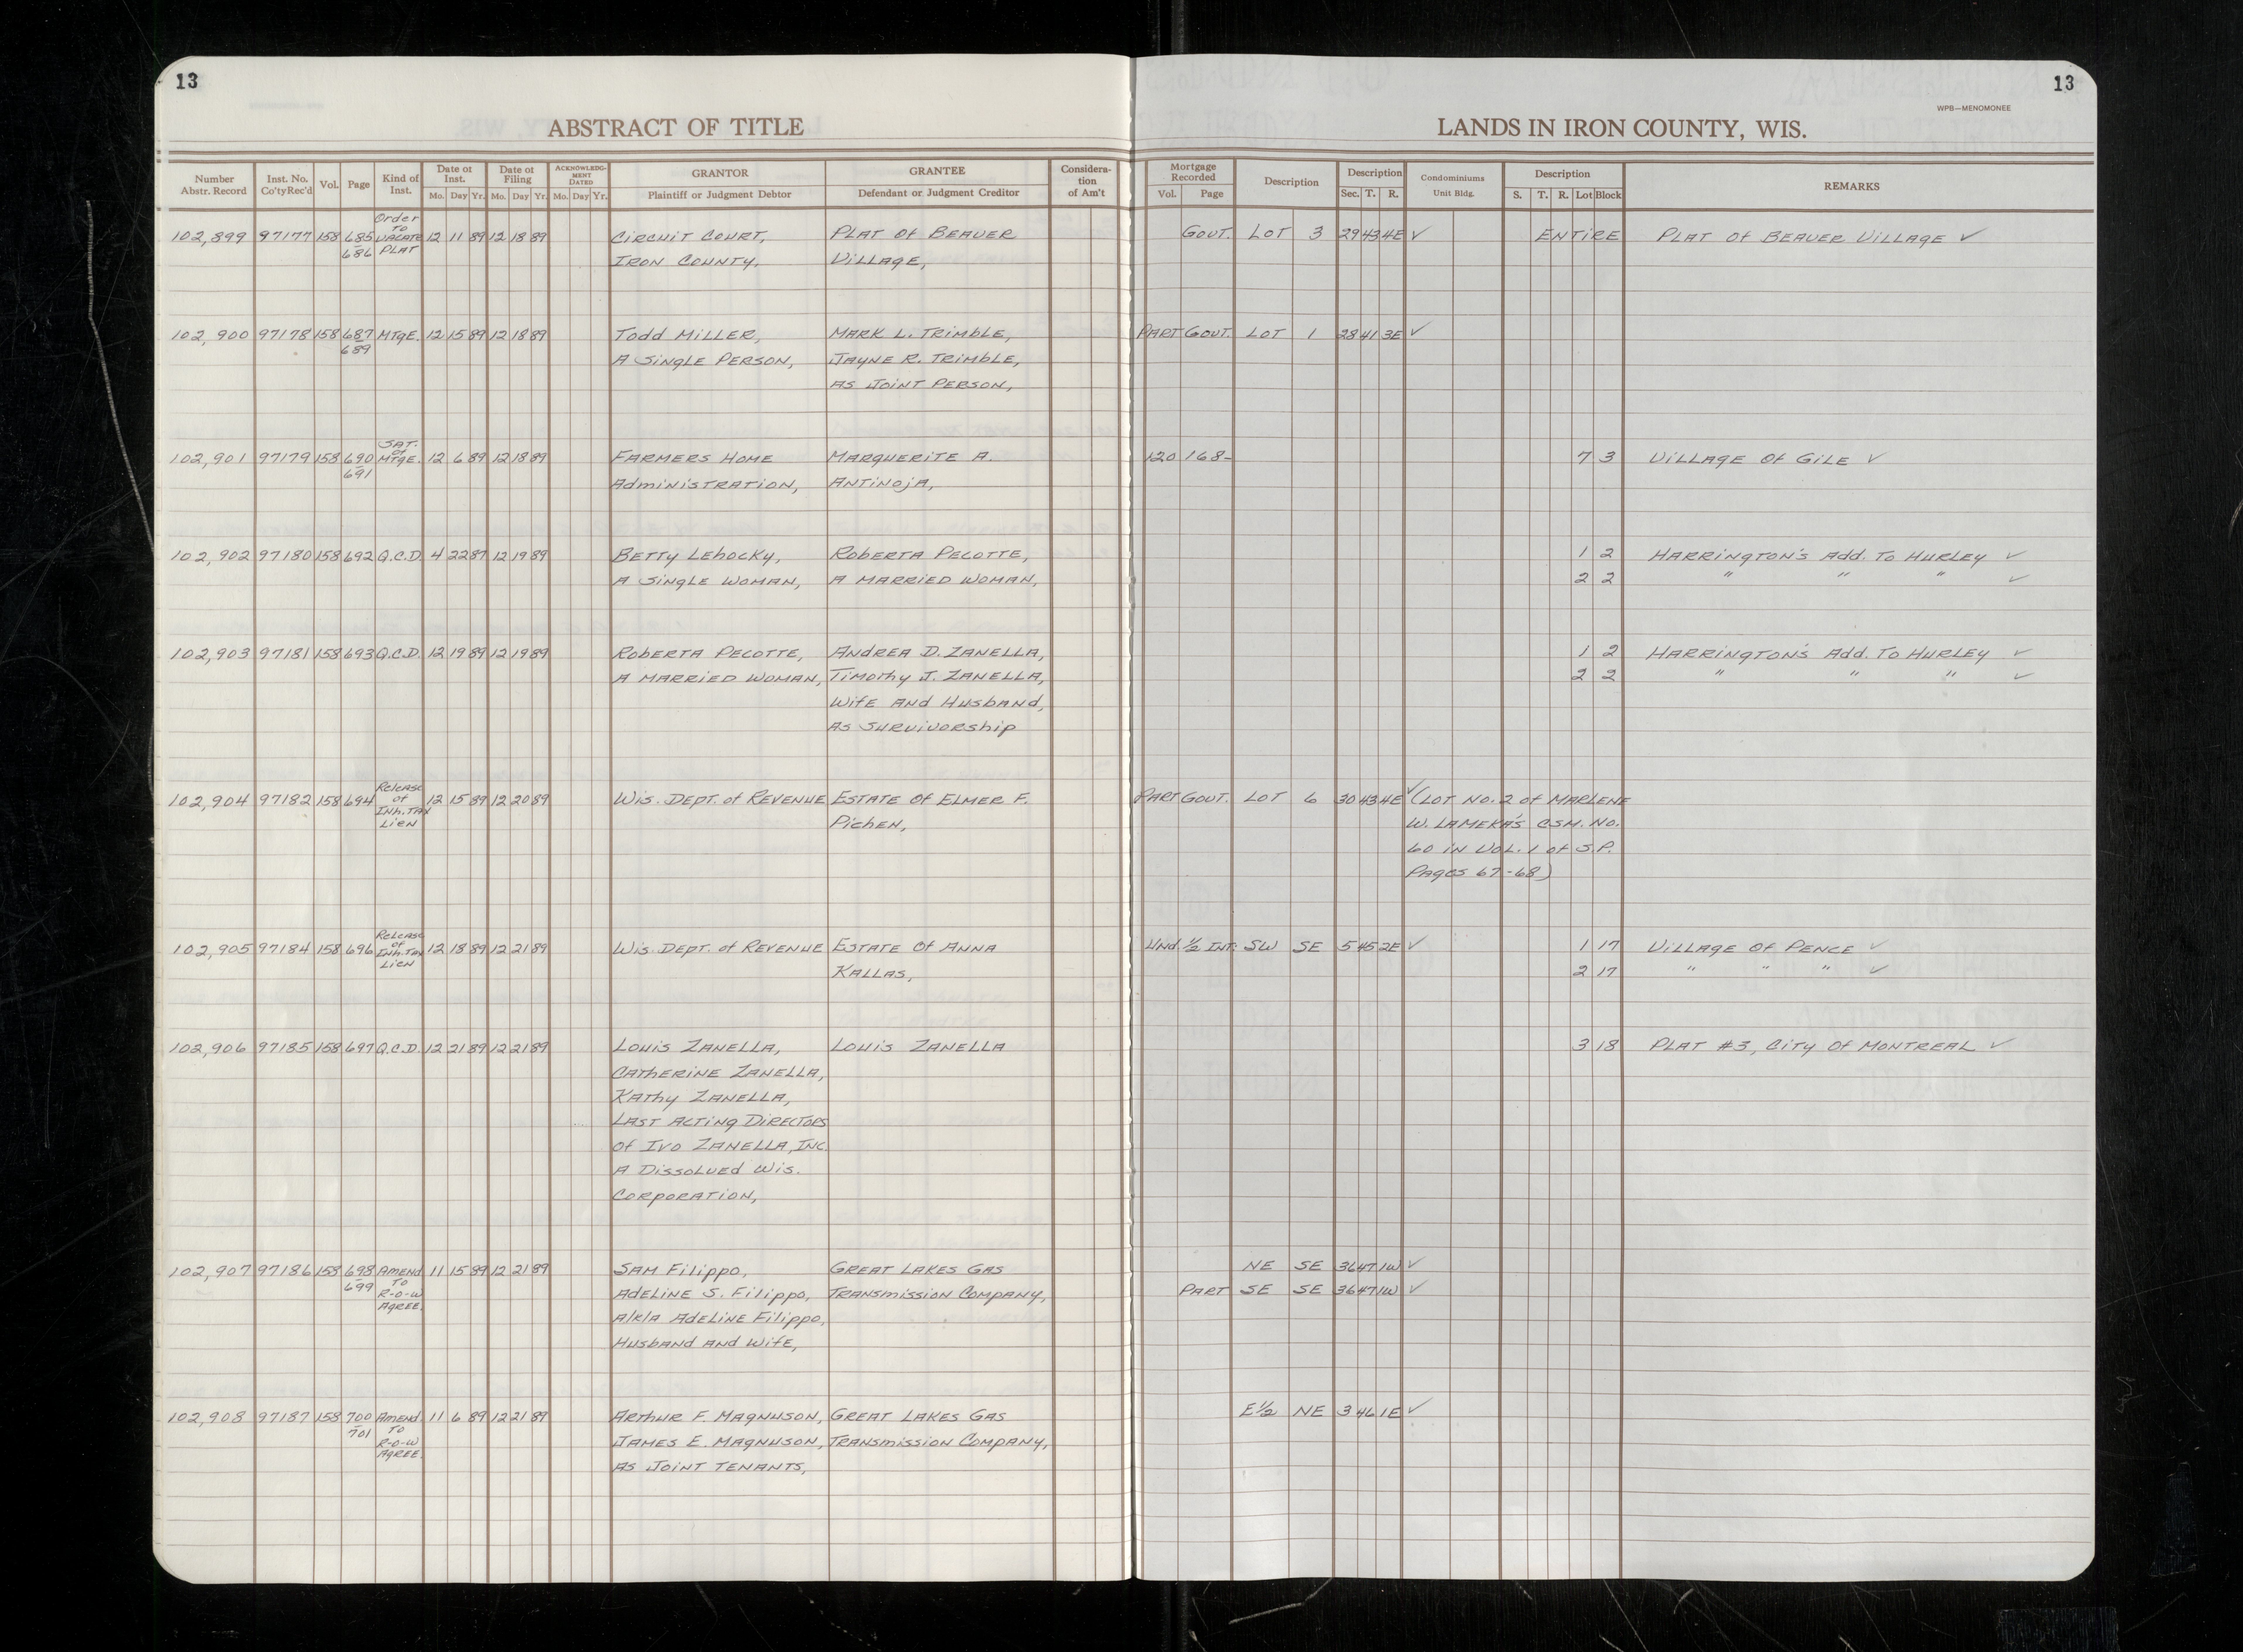 13
13
WPB—MENOMONEE
ABSTRACT OF TITLE
LANDS IN IRON COUNTY, WIS.
Number Abstr. Record | Inst. No. Co'tyRec'd | Vol. | Page | Kind of Inst. | Date of Inst. Mo. Day Yr. | Date of Filing Mo. Day Yr. | ACKNOWLEDGMENT DATED Mo. Day Yr. | GRANTOR Plaintiff or Judgment Debtor | GRANTEE Defendant or Judgment Creditor | Consideration of Am't | Mortgage Recorded Vol. Page | Description | Description Sec. T. R. | Condominiums Unit Bldg. | Description S. T. R. Lot Block | REMARKS
102,899 97177 158 685-686 Order To Vacate Plat 12 11 89 12 18 89 Circuit Court, Plat of Beaver Gout. Lot 3 29 43 4E ✓ Entire Plat of Beaver Village ✓
Iron County, Village,
102,900 97178 158 687-689 Mtge. 12 15 89 12 18 89 Todd Miller, Mark L. Trimble, Part Gout. Lot 1 28 41 3E ✓
A Single Person, Jayne R. Trimble,
As Joint Person,
102,901 97179 158 690-691 Sat. of Mtge. 12 6 89 12 18 89 Farmers Home Marguerite A. 120 168- 7 3 Village of Gile ✓
Administration, Antinoja,
102,902 97180 158 692 Q.C.D. 4 22 87 12 19 89 Betty Lehocky, Roberta Pecotte, 1 2 Harrington's Add. To Hurley ✓
A Single Woman, A Married Woman, 2 2 " " " ✓
102,903 97181 158 693 Q.C.D. 12 19 89 12 19 89 Roberta Pecotte, Andrea D. Zanella, 1 2 Harrington's Add. To Hurley ✓
A Married Woman, Timothy J. Zanella, 2 2 " " " ✓
Wife and Husband,
As Survivorship
102,904 97182 158 694 Release of Inh. Tax Lien 12 15 89 12 20 89 Wis. Dept. of Revenue Estate of Elmer F. Part Gout. Lot 6 30 43 4E ✓ (Lot No. 2 of Marlene
Pichen, W. Lameka's CSM. No.
60 in Vol. 1 of S.P.
Pages 67-68)
102,905 97184 158 696 Release of Inh. Tax Lien 12 18 89 12 21 89 Wis. Dept. of Revenue Estate of Anna Und. ½ Int. SW SE 5 45 2E ✓ 1 17 Village of Pence ✓
Kallas, 2 17 " " " ✓
102,906 97185 158 697 Q.C.D. 12 21 89 12 21 89 Louis Zanella, Louis Zanella 3 18 Plat #3, City of Montreal ✓
Catherine Zanella,
Kathy Zanella,
Last Acting Directors
of Ivo Zanella, Inc.
A Dissolved Wis.
Corporation,
102,907 97186 158 698-699 Amend. To R-O-W Agree. 11 15 89 12 21 89 Sam Filippo, Great Lakes Gas NE SE 36 47 1W ✓
Adeline S. Filippo, Transmission Company, Part SE SE 36 47 1W ✓
A/K/A Adeline Filippo,
Husband and Wife,
102,908 97187 158 700-701 Amend. To R-O-W Agree. 11 6 89 12 21 89 Arthur F. Magnuson, Great Lakes Gas E½ NE 3 46 1E ✓
James E. Magnuson, Transmission Company,
As Joint Tenants,